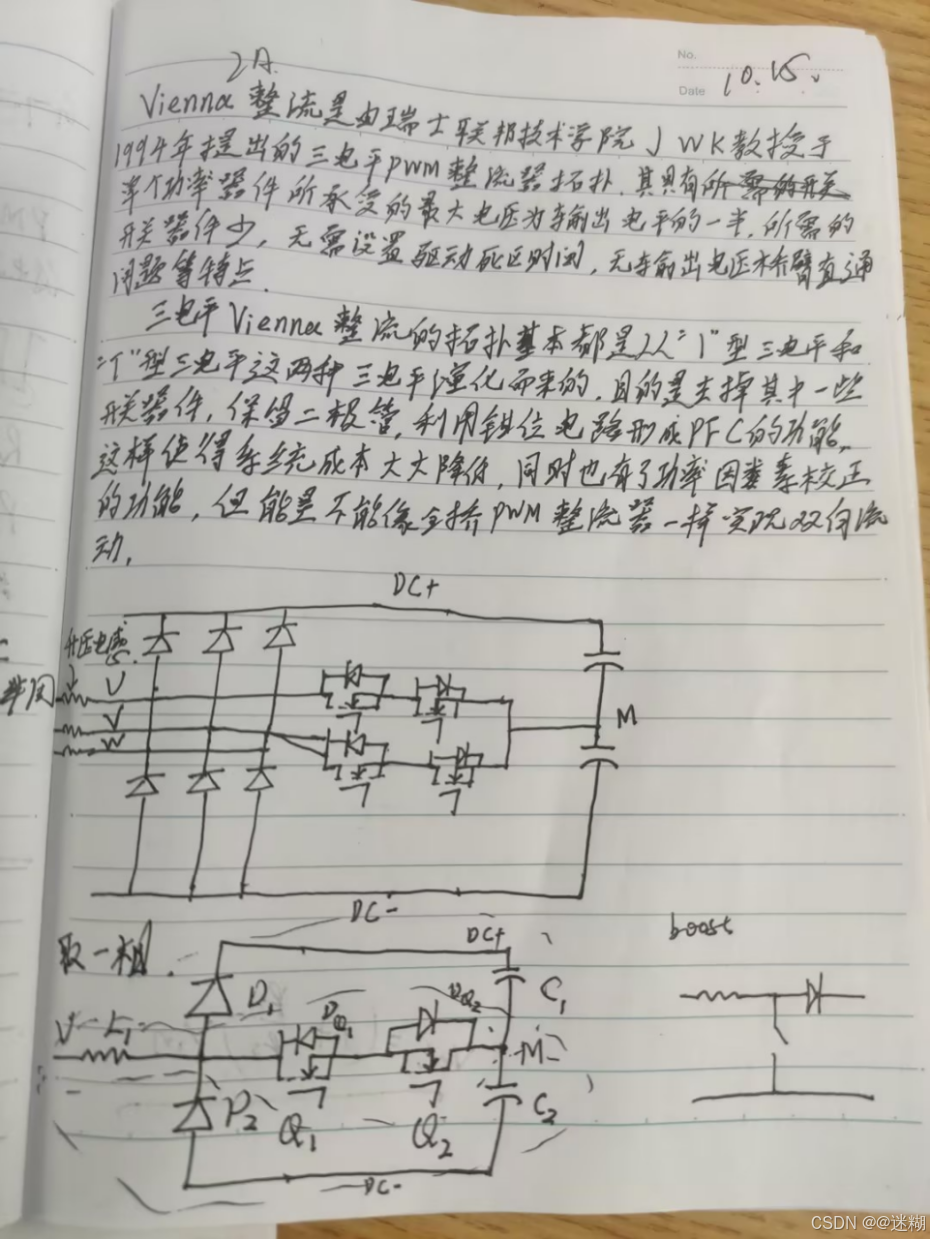 No.
Date 10.15.
2A.
Vienna 整流是由瑞士联邦技术学院 J W K 教授于
1994年提出的三电平PWM整流器拓扑.其具有
单个功率器件所承受的最大电压为输出电平的一半.所需的
开关器件少，无需设置驱动死区时间，无输出电压桥臂直通
问题等特点.
三电平Vienna整流的拓扑基本都是以"I"型三电平和
"T"型三电平这两种三电平演化而来的.目的是去掉其中一些
开关器件，保留二极管，利用钳位电路形成PFC的功能.
这样使得系统成本大大降低，同时也有了功率因素校正
的功能，但能量不能像全桥PWM整流器一样实现双向流
动.
DC+
升压电感
U
V
W
M
DC-
取一相.
DC+
boost
D1
C1
U L1
DQ1
DQ2
M
D2
Q1
Q2
C2
DC-
CSDN @@迷糊